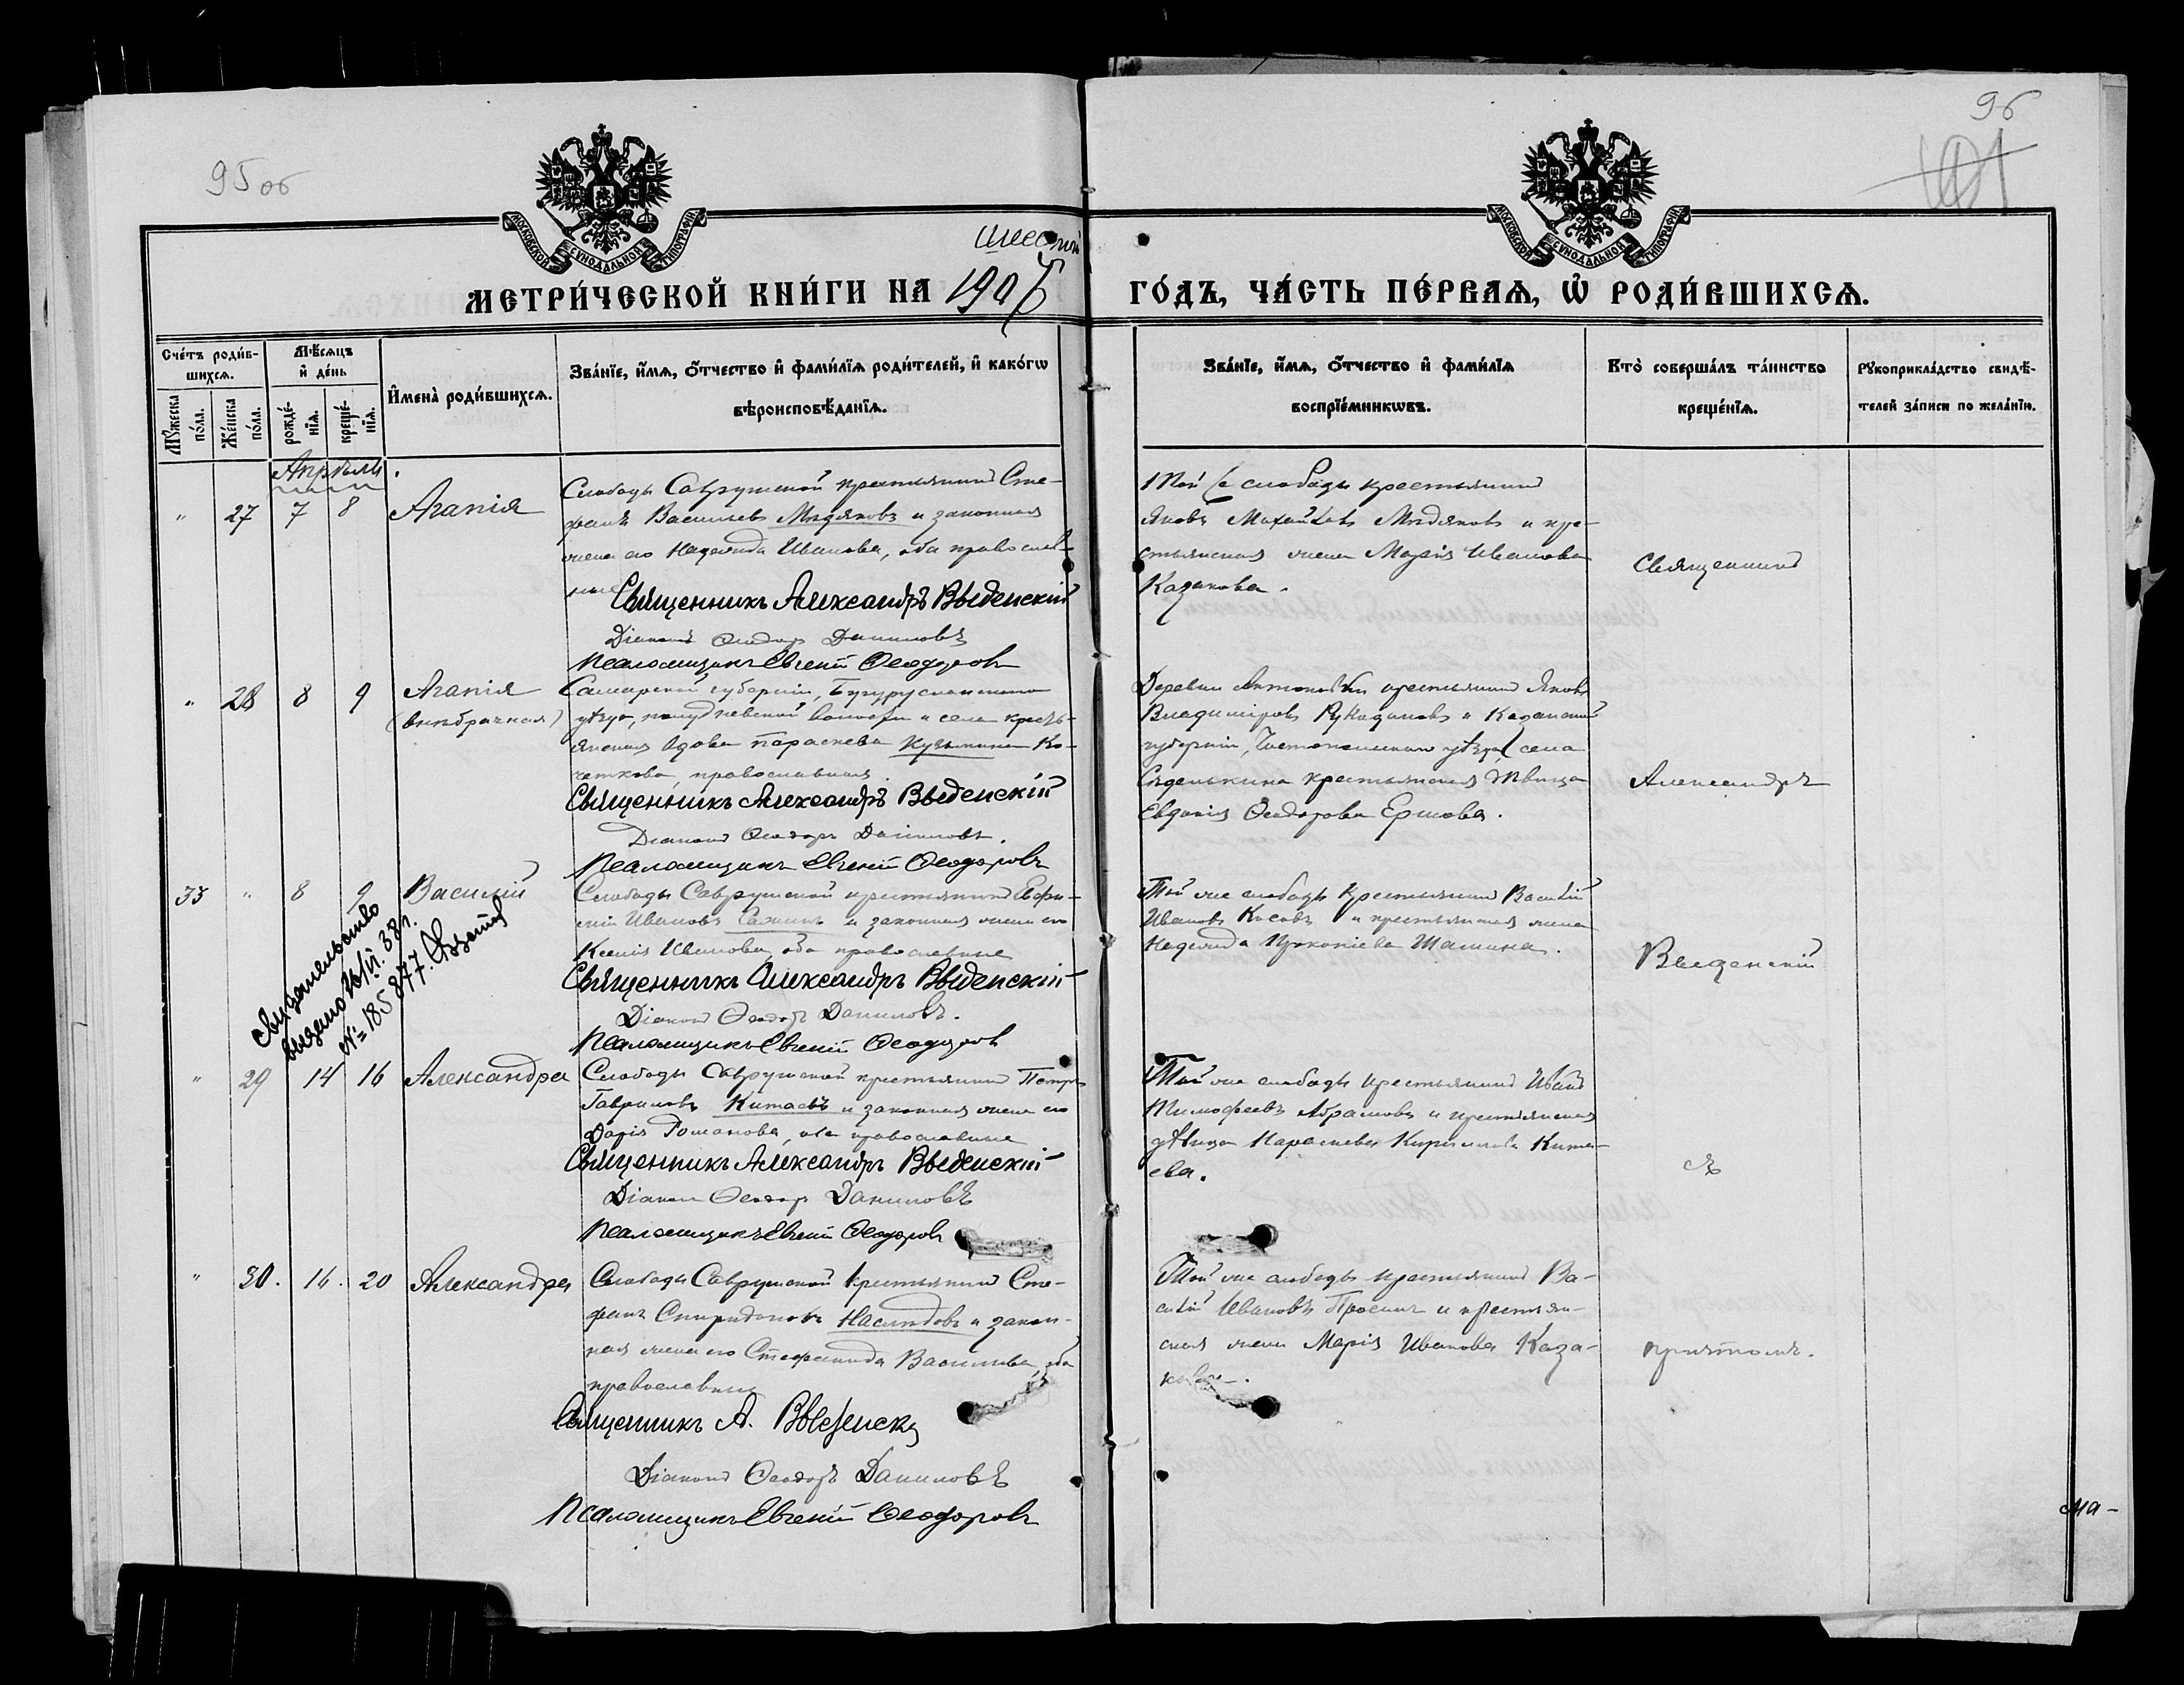 95 об
96
101
МОСКОВСКОЙ СѴНОДАЛЬНОЙ ТИПОГРАФІИ
МОСКОВСКОЙ СѴНОДАЛЬНОЙ ТИПОГРАФІИ
шестой
МЕТРИ́ЧЕСКОЙ КНИ́ГИ НА 1906
ГО́ДЪ, ЧА́СТЬ ПЕ́РВАѦ, Ѡ҆ РОДИ́ВШИХСѦ.
Сче́тъ роди́в-
шихсѧ.
Мꙋ́жеска по́ла.
Же́нска по́ла.
Мѣ́сѧцъ
и҆ де́нь
рожде́-
нїѧ.
креще́-
нїѧ.
И҆мена̀ роди́вшихсѧ.
Зва́нїе, и҆́мѧ, ѻ҆́тчество и҆ фами́лїѧ роди́телей, и҆ како́гѡ
вѣроисповѣ́данїѧ.
Зва́нїе, и҆́мѧ, ѻ҆́тчество и҆ фами́лїѧ
воспрїе́мникѡвъ.
Кто̀ соверша́лъ та́инство
креще́нїѧ.
Рꙋкоприкла́дство свидѣ́-
телей за́писи по жела́нїю.
Апрѣль.
" 27 7 8 Агапія
Слободы Саврушской крестьянинъ Сте-
фанъ Васильевъ Мидяковъ и законная
жена его Надежда Иванова, оба православ-
ные
Священникъ Александръ Введенскій
Діаконъ Ѳеодоръ Даниловъ
Псаломщикъ Евгеній Ѳеодоровъ
Той же слободы крестьянинъ
Яковъ Михайловъ Мидяковъ и кре-
стьянская жена Марія Иванова
Казакова.
Священникъ
" 28 8 9 Агапія
(внѣбрачная)
Самарской губерніи, Бугурусланскаго
уѣзда, полудневской волости и села кресть-
янская вдова Параскева Кузьмина Ко-
четкова, православная.
Священникъ Александръ Введенскій
Діаконъ Ѳеодоръ Даниловъ.
Псаломщикъ Евгеній Ѳеодоровъ
Деревни Антоновки крестьянинъ Яковъ
Владиміровъ и Казанской
губерніи, Чистопольскаго уѣзда, села
Седелькина крестьянская дѣвица
Евдокія Ѳеодорова Ершова.
Александръ
33 " 8 9 Василій
Слободы Саврушской крестьянинъ Евфи-
мій Ивановъ и законная жена его
Ксенія Иванова, оба православные
Священникъ Александръ Введенскій
Діаконъ Ѳеодоръ Даниловъ.
Псаломщикъ Евгеній Ѳеодоровъ
Той же слободы крестьянинъ Василій
Ивановъ Косовъ и крестьянская жена
Надежда Прокопіева Шашина.
Введенскій
Свидетельство
выдано 38 г.
№ 185877.
" 29 14 16 Александра
Слободы Саврушской крестьянинъ Петръ
Гавриловъ Китаевъ и законная жена его
Дарія Романова, оба православные
Священникъ Александръ Введенскій
Діаконъ Ѳеодоръ Даниловъ
Псаломщикъ Евгеній Ѳеодоровъ
Той же слободы крестьянинъ Иванъ
Тимофеевъ Абрамовъ и крестьянская
дѣвица Параскева Кириллова Кита-
ева.
съ
" 30. 16. 20 Александра
Слободы Саврушской крестьянинъ Сте-
фанъ Спиридоновъ Наслѣдовъ и закон-
ная жена его Стефанида Васильева, оба
православные
Священникъ А. Введенскій
Діаконъ Ѳеодоръ Даниловъ
Псаломщикъ Евгеній Ѳеодоровъ
Той же слободы крестьянинъ Ва-
силій Ивановъ и крестьян-
ская жена Марія Иванова Каза-
кова.
причтомъ.
ма-